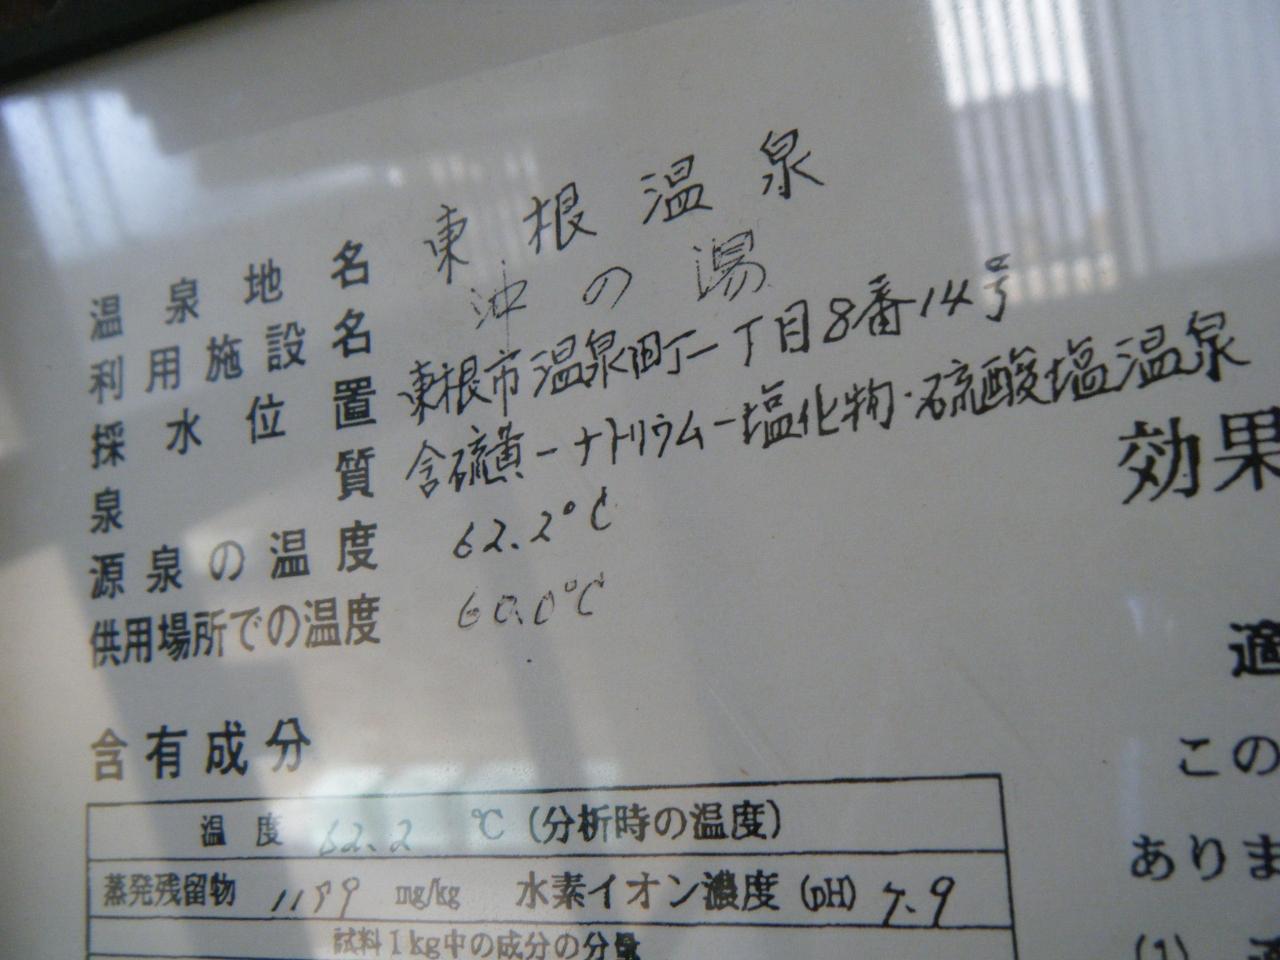 温泉地名 東根温泉
利用施設名 沖の湯
採水位置 東根市温泉町一丁目8番14号
泉質 含硫黄ーナトリウムー塩化物・硫酸塩温泉
源泉の温度 62.2℃
供用場所での温度 60.0℃
効果
含有成分
温度 62.2 ℃ (分析時の温度)
蒸発残留物 mg/kg 水素イオン濃度 (pH) 7.9
試料1kg中の成分の分量
適
この
ありま
(1)